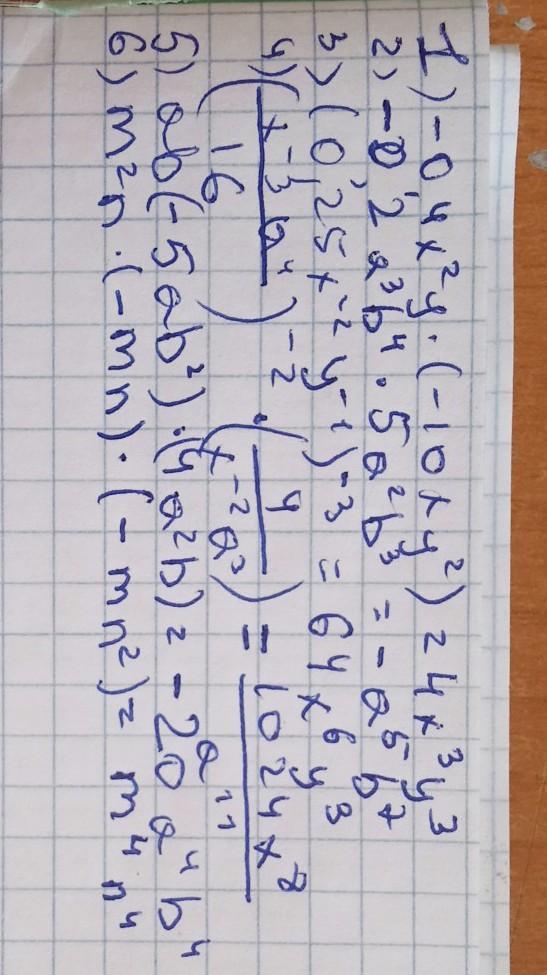 1) -0,4x²y · (-10xy²) = 4x³y³
2) -0,2a³b⁴ · 5a²b³ = -a⁵b⁷
3) (0,25x⁻²y⁻¹)⁻³ = 64x⁶y³
4) (x⁻³b⁴/16)⁻² · (4/x⁻²a³) = 1024x⁸/a¹¹
5) ab(-5ab²) · (4a²b) = -20a⁴b⁴
6) m²n · (-mn) · (-mn²) = m⁴n⁴